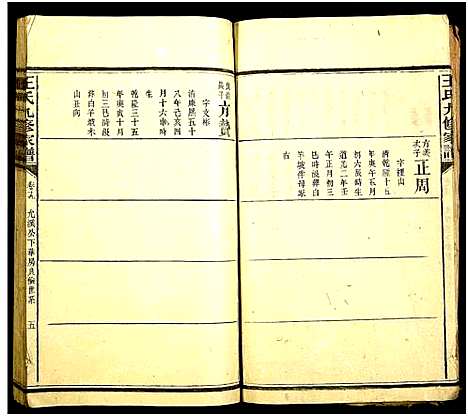 王氏九修家譜
方義
次子
正周
字程山
清乾隆十五
年庚午五月
初六辰時生
道光二年壬
午正月初三
巳時歿葬白
羊坡伴傅墓
右
長子
方贊
字文彬
清康熙五十
八年己亥四
月十六寅時
生
乾隆三十五
年庚寅十月
初三巳時歿
葬白羊坡未
山丑向
王氏九修家譜
允漢公下華房良倫世系
五